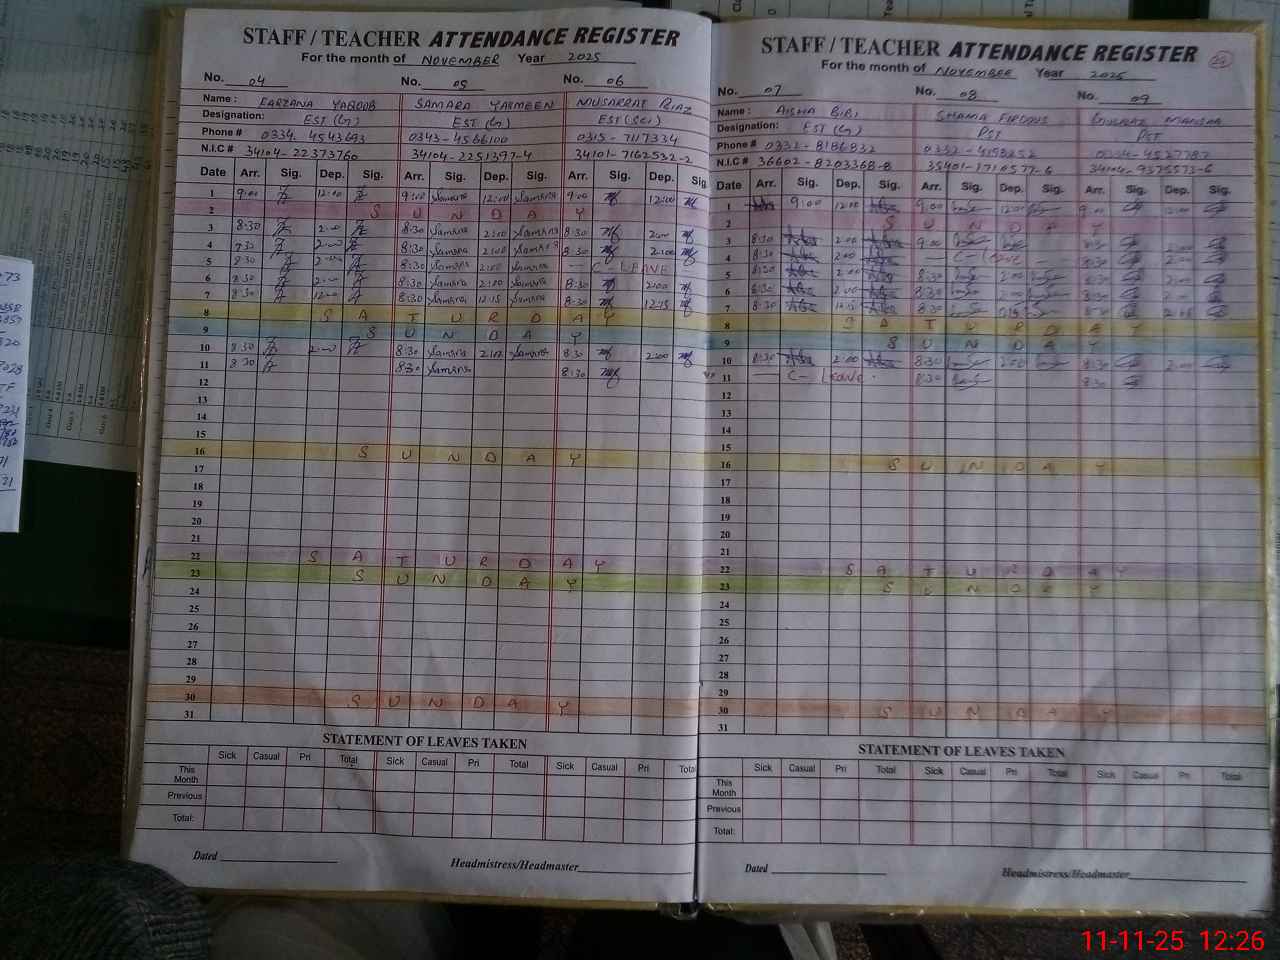 STAFF / TEACHER ATTENDANCE REGISTER
For the month of NOVEMBER Year 2025
No. 04 No. 05 No. 06
Name : FARZANA YAQOOB SAMARA YASMEEN MUSARRAT RIAZ
Designation: EST (G) EST (G) EST (Sci)
Phone # 0334. 4543693 0343-4566100 0315-7117334
N.I.C # 34104-22373760 34104-2251397-4 34101-7162532-2
Date Arr. Sig. Dep. Sig. Arr. Sig. Dep. Sig. Arr. Sig. Dep. Sig.
1 9:00 12:00 9:00 Samara 12:00 Samara 9:00 12:00
2 S U N D A Y
3 8:30 2:00 8:30 Samara 2:00 Samara 8:30 2:00
4 7:30 2:00 8:30 Samara 2:00 Samara 8:30 2:00
5 8:30 2:00 8:30 Samara 2:00 Samara — C-LEAVE
6 8:30 2:00 8:30 Samara 2:00 Samara 8:30 2:00
7 8:30 12:00 8:30 Samara 12:15 Samara 8:30 12:15
8 S A T U R D A Y
9 S U N D A Y
10 8:30 2:00 8:30 Samara 2:00 Samara 8:30 2:00
11 8:30 8:30 Samara 8:30
12
13
14
15
16 S U N D A Y
17
18
19
20
21
22 S A T U R D A Y
23 S U N D A Y
24
25
26
27
28
29
30 S U N D A Y
31
STATEMENT OF LEAVES TAKEN
Sick Casual Pri Total Sick Casual Pri Total Sick Casual Pri Total
This Month
Previous
Total:
Dated Headmistress/Headmaster
STAFF / TEACHER ATTENDANCE REGISTER
For the month of NOVEMBER Year 2025
No. 07 No. 08 No. 09
Name : AISHA BIBI SHAMA FIRDOUS
Designation: EST (G) PST PST
Phone # 0332-8186832 0332-4198252 0334-4527787
N.I.C # 36602-8203368-8 35401-1710577-6 34104-9375573-6
Date Arr. Sig. Dep. Sig. Arr. Sig. Dep. Sig. Arr. Sig. Dep. Sig.
1 9:00 12:00 9:00 12:00 9:00 12:00
2 S U N D A Y
3 8:30 2:00 9:00 8:30
4 8:30 2:00 — C-Leave 8:30 2:00
5 8:30 2:00 8:30 2:00 8:30 2:00
6 8:30 2:00 8:30 2:00 8:30 2:00
7 8:30 12:15 8:30 12:15 8:30
8 S A T U R D A Y
9 S U N D A Y
10 8:30 2:00 8:30 2:00 8:30 2:00
11 — C- Leave 8:30 8:30
12
13
14
15
16 S U N D A Y
17
18
19
20
21
22 S A T U R D A Y
23 S U N D A Y
24
25
26
27
28
29
30 S U N D A Y
31
STATEMENT OF LEAVES TAKEN
Sick Casual Pri Total Sick Casual Pri Total Sick Casual Pri Total
This Month
Previous
Total:
Dated Headmistress/Headmaster
11-11-25 12:26